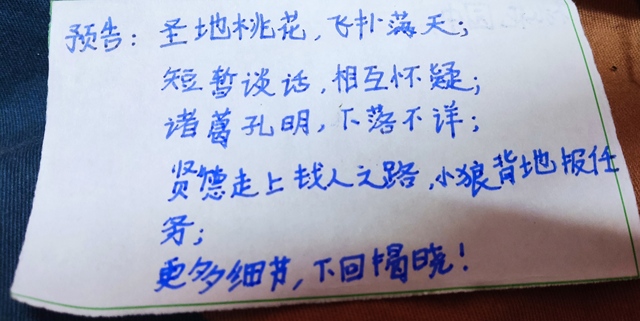 预告：圣地桃花，飞扑满天；
短暂谈话，相互怀疑；
诸葛孔明，下落不详；
贤德走上找人之路，小狼背地报任
务；
更多细节，下回揭晓！